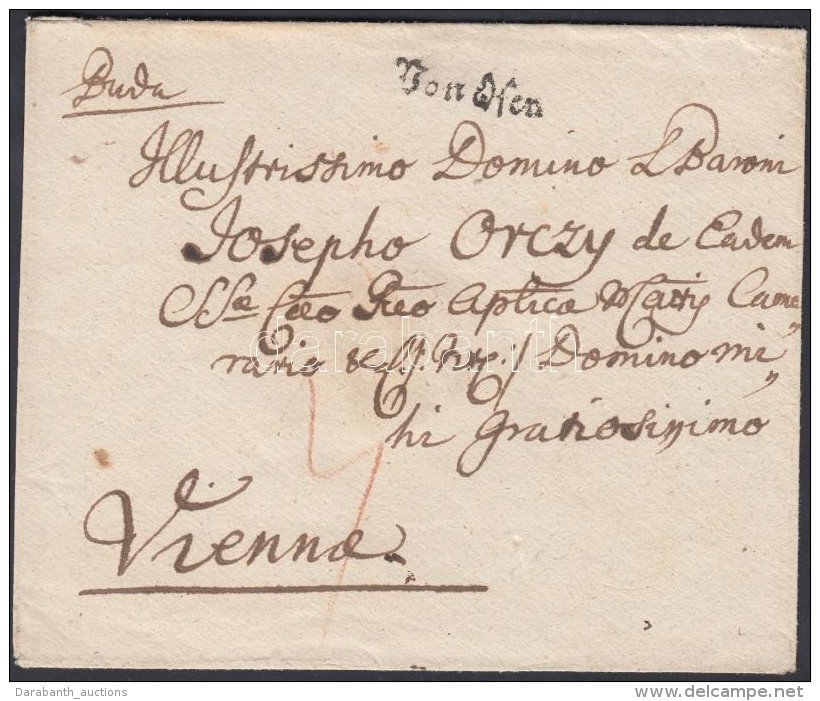 Buda
Von Ofen
Illustrissimo Domino L Baroni
Josepho Orczy de Eadem
SSæ Cæo Reo Aplicæ Mattis Came„
rario Domino mi„
hi gratiosissimo
Viennæ.
darabanth
Darabanth_auctions
www.delcampe.net